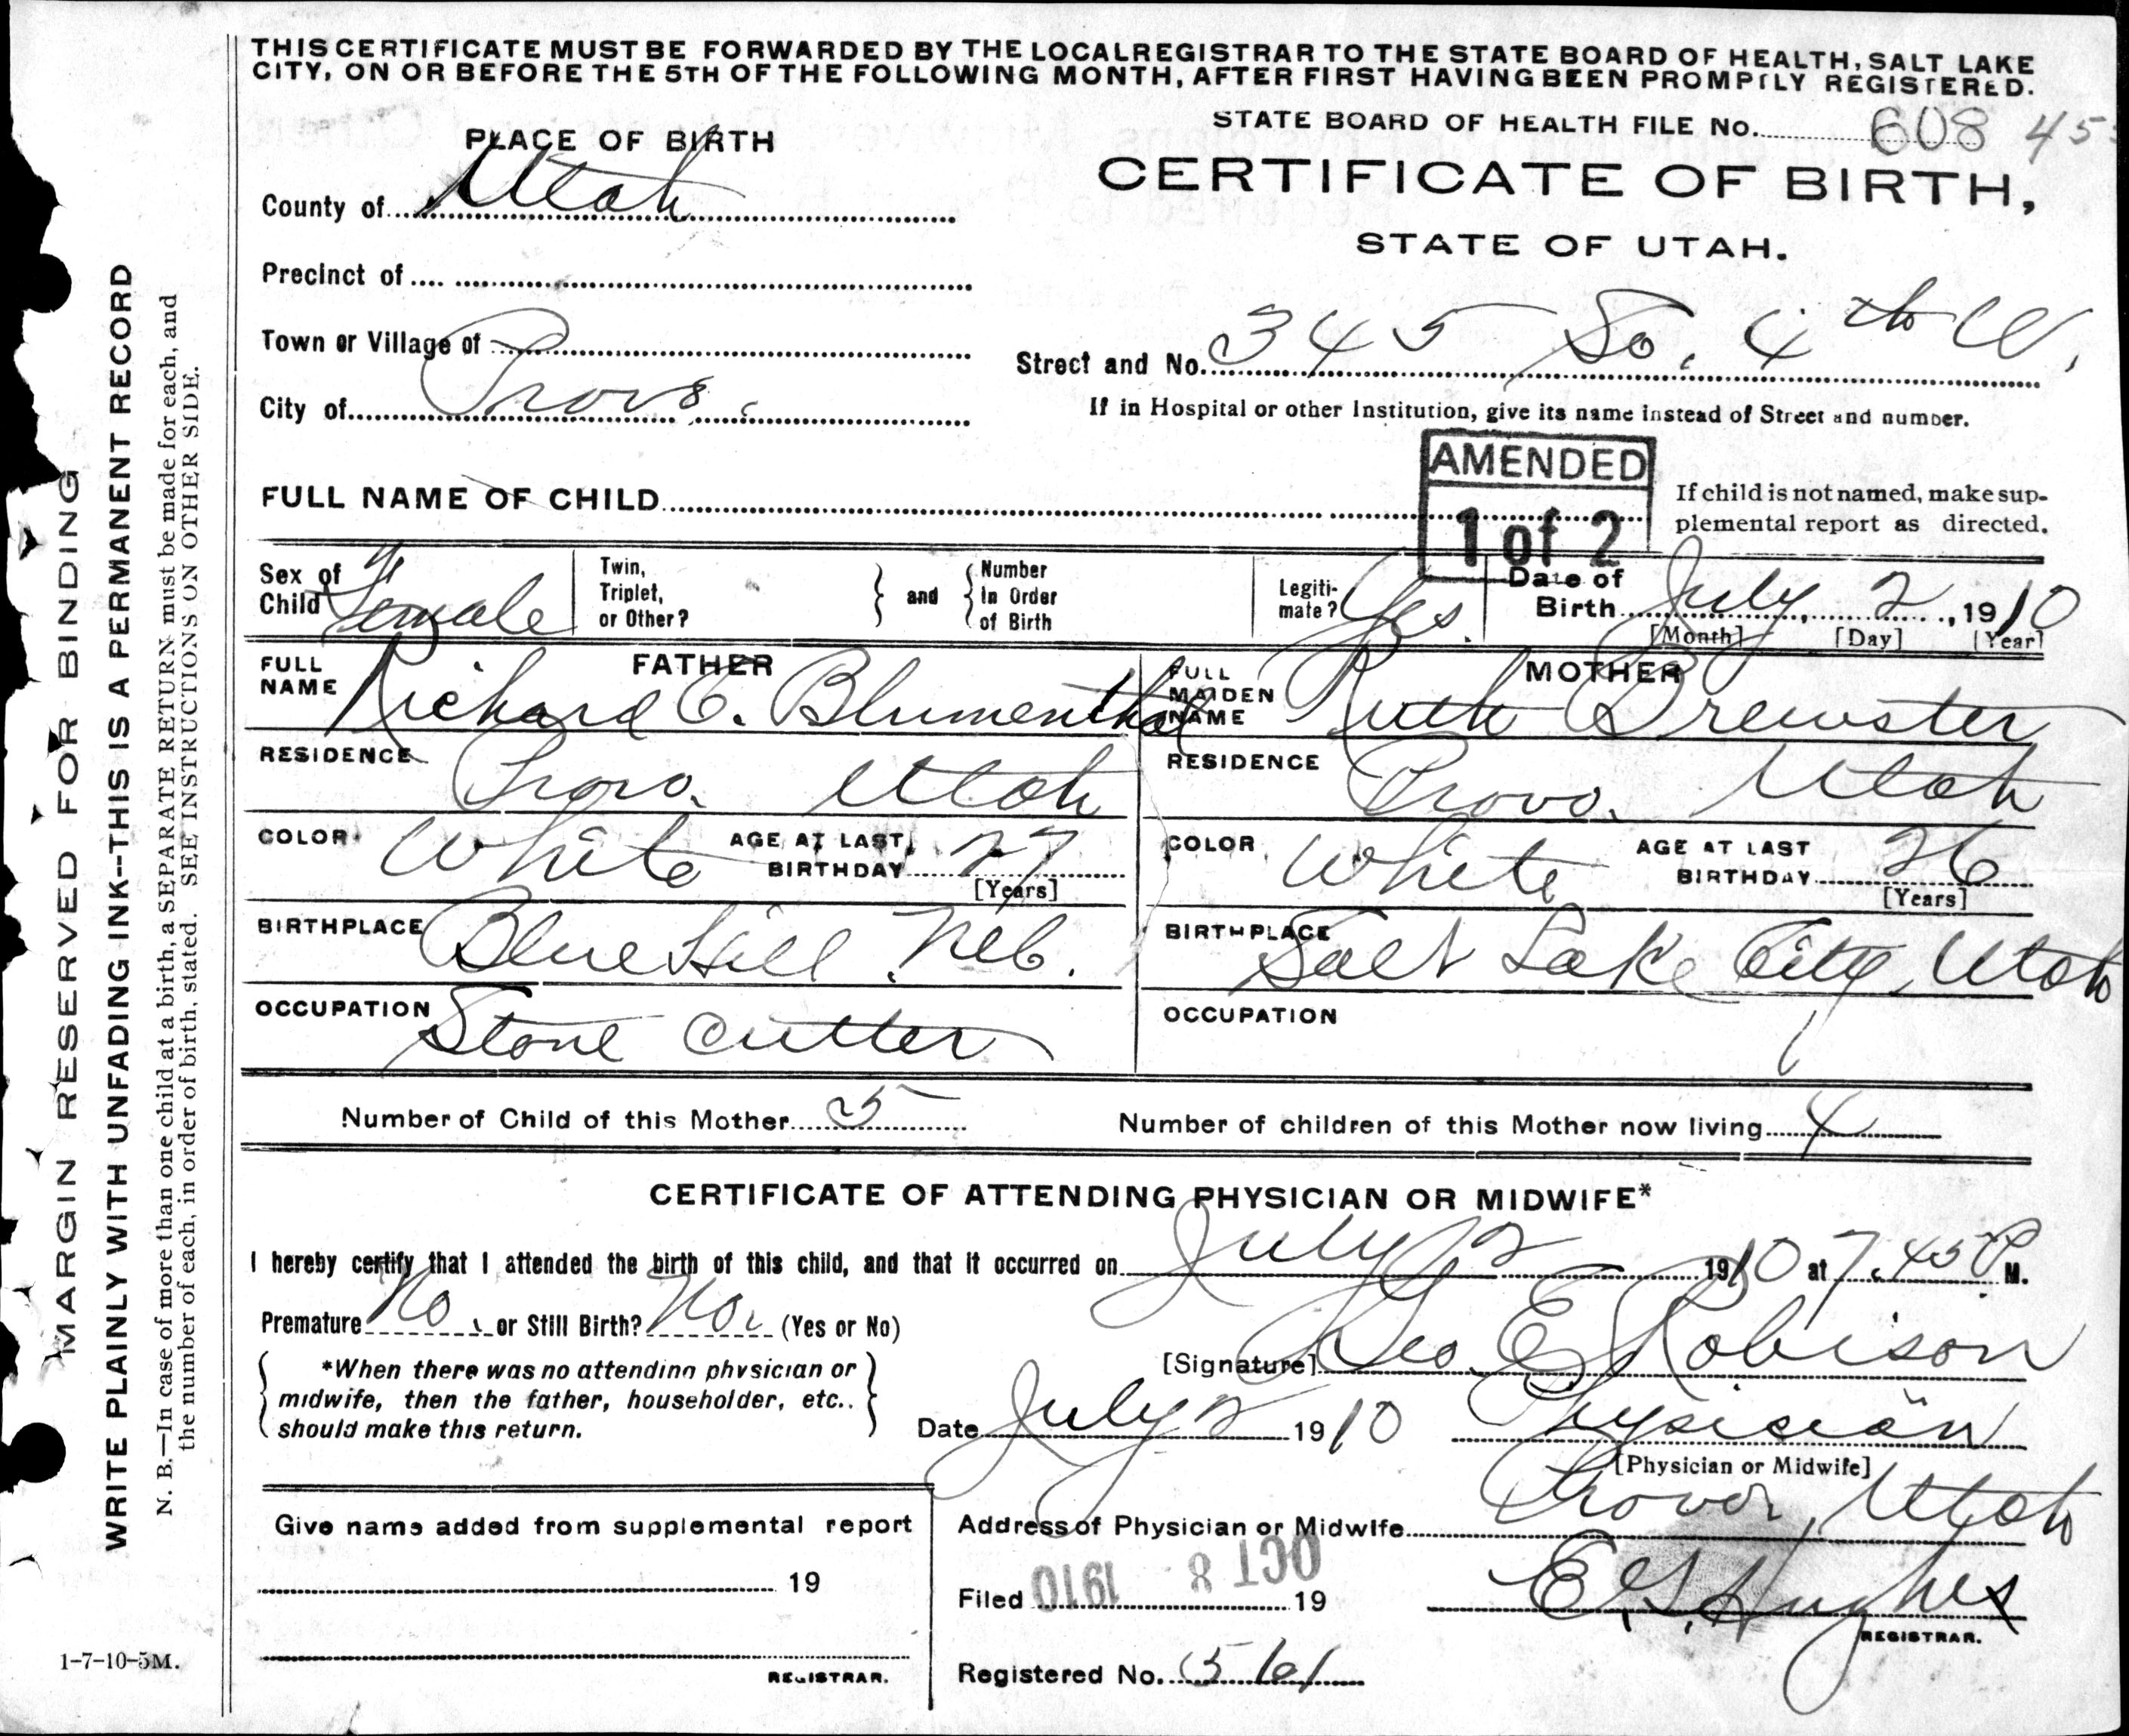 THIS CERTIFICATE MUST BE FORWARDED BY THE LOCAL REGISTRAR TO THE STATE BOARD OF HEALTH, SALT LAKE
CITY, ON OR BEFORE THE 5TH OF THE FOLLOWING MONTH, AFTER FIRST HAVING BEEN PROMPTLY REGISTERED.
STATE BOARD OF HEALTH FILE No. 608 45
PLACE OF BIRTH
CERTIFICATE OF BIRTH,
County of Utah
STATE OF UTAH.
Precinct of
Town or Village of
Street and No. 345 So. 4th W.
City of Provo.
If in Hospital or other Institution, give its name instead of Street and number.
AMENDED
1 of 2
FULL NAME OF CHILD
If child is not named, make sup-
plemental report as directed.
Sex of Child Female
Twin, Triplet, or Other?
and
Number In Order of Birth
Legiti-mate? Yes.
Date of Birth July 2, 1910
[Month] [Day] [Year]
FATHER
FULL NAME Richard C. Blumenthal
RESIDENCE Provo. Utah
COLOR White AGE AT LAST BIRTHDAY 27
[Years]
BIRTHPLACE Blue Hill, Neb.
OCCUPATION Stone Cutter
MOTHER
FULL MAIDEN NAME Ruth Brewster
RESIDENCE Provo. Utah
COLOR White AGE AT LAST BIRTHDAY 26
[Years]
BIRTHPLACE Salt Lake City, Utah
OCCUPATION
Number of Child of this Mother 5 Number of children of this Mother now living 4
CERTIFICATE OF ATTENDING PHYSICIAN OR MIDWIFE*
I hereby certify that I attended the birth of this child, and that it occurred on July 2 1910 at 7.45 P M.
Premature No or Still Birth? No. (Yes or No)
[Signature] Geo. E Robison
*When there was no attending physician or
midwife, then the father, householder, etc.,
should make this return.
Date July 2 1910 Physician
[Physician or Midwife]
Address of Physician or Midwife Provo, Utah
Give name added from supplemental report
19
REGISTRAR.
Filed OCT 8 1910 19
E. G. Hughes
REGISTRAR.
Registered No. 561
1-7-10-5M.
MARGIN RESERVED FOR BINDING
WRITE PLAINLY WITH UNFADING INK--THIS IS A PERMANENT RECORD
N. B.—In case of more than one child at a birth, a SEPARATE RETURN must be made for each, and
the number of each, in order of birth, stated. SEE INSTRUCTIONS ON OTHER SIDE.